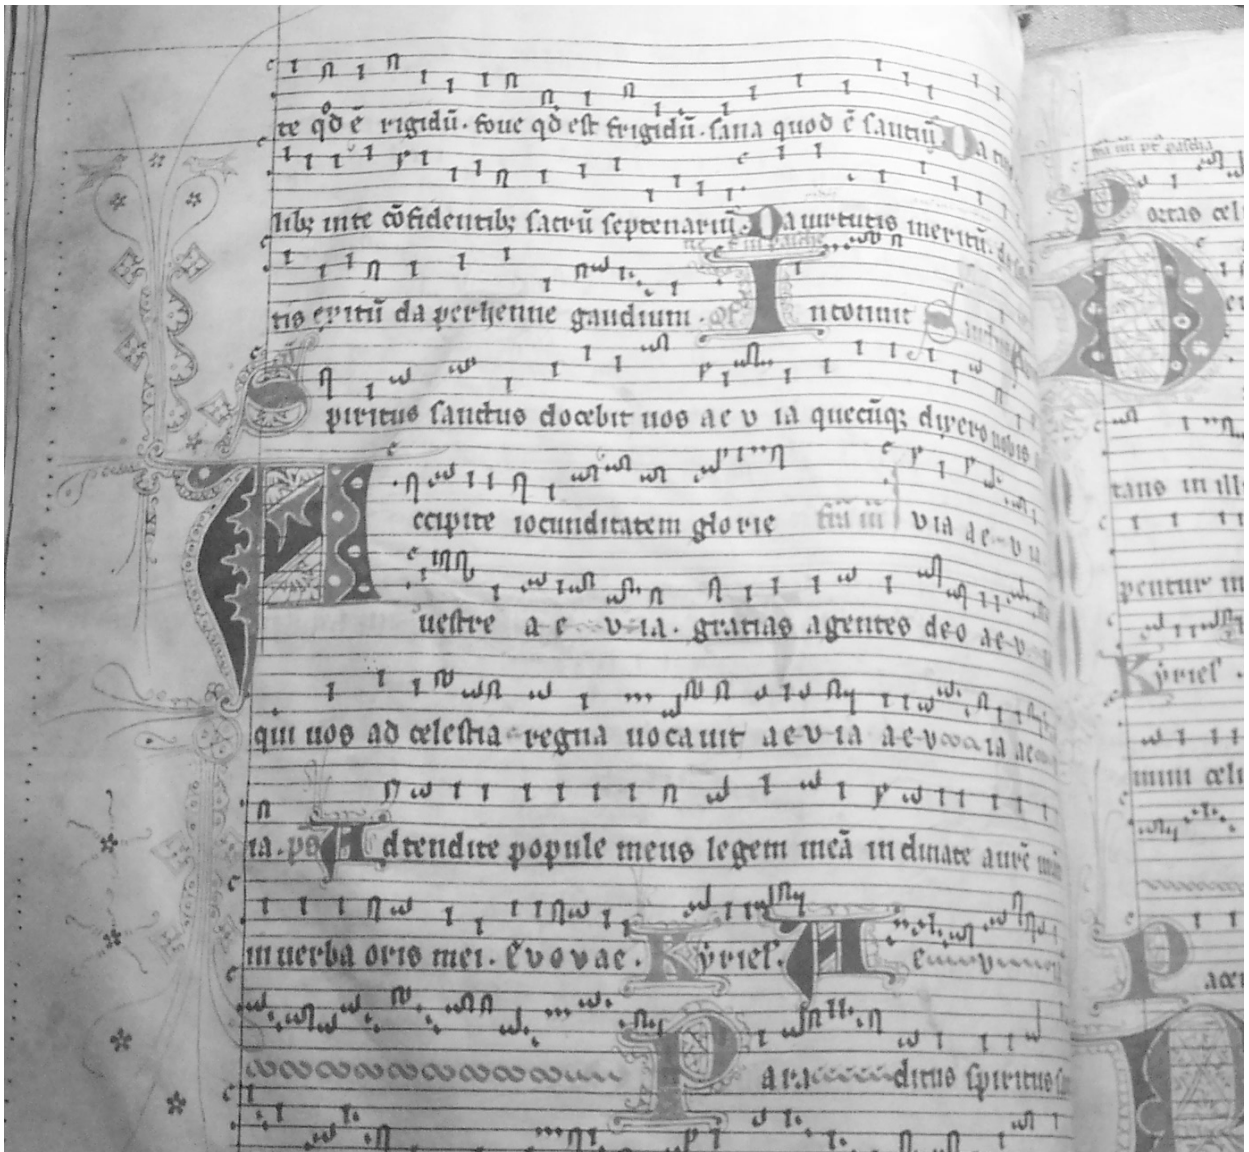 te qđ ē rigidū. foue qđ est frigidū. sana quod ē sautiū Da tuis
lib; inte cōfidentib; sacrū septenariū. Da uirtutis meritū. da
ne f iii pasche
tis exitū da perhenne gaudium. Intonuit
Spiritus sanctus docebit uos ae v ia quecūq; dixero uobis
Accipite iocunditatem glorie via ae v ia
uestre a e v ia. gratias agentes deo ae v
qui uos ad celestia regna uocauit ae v ia ae v ia ae
ia. ps Adtendite popule meus legem meā inclinate aurē
in uerba oris mei. Evovae. Kyriel. Ae v
Para clitus spiritus
fia iiii pt pascha
Portas celi
tans in ill
pentur in
Kyriel.
mini celi
Pacem